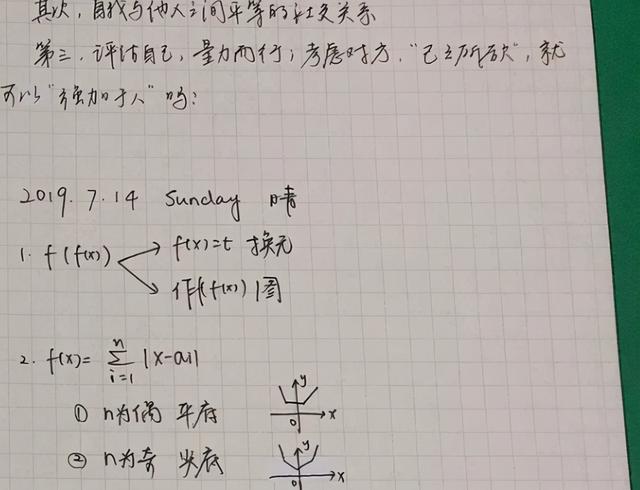 其次，自我与他人之间平等的社交关系
第三，评估自己，量力而行；考虑对方，"己之所欲"，就
可以"强加于人"吗？
2019.7.14 Sunday 晴
1. f(f(x))
f(x)=t 换元
作f(x)图
2. f(x)= n∑i=1 |x-ai|
① n为偶 平底
y
x
0
② n为奇 尖底
y
x
0